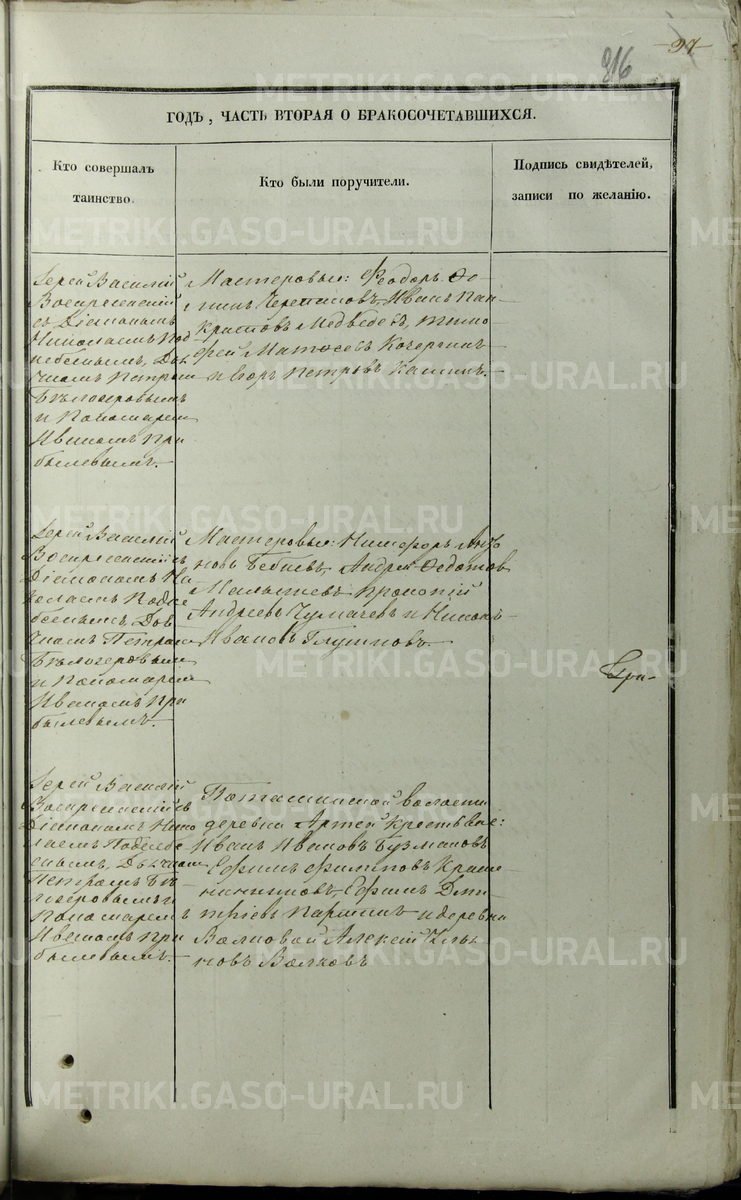 97
216
ГОДЪ, ЧАСТЬ ВТОРАЯ О БРАКОСОЧЕТАВШИХСЯ.
Кто совершалъ
таинство.
Кто были поручители.
Подпись свидѣтелей,
записи по желанію.
Іерей Василій
Воскресенскій
съ Діакономъ
Николаемъ Под
небеснымъ, Дья
чкомъ Петромъ
Бѣлозеровымъ
и Пономаремъ
Иваномъ При
былевымъ.
Мастеровые: Ѳеодоръ
Черепановъ, Иванъ Пан
кратовъ Медведевъ, Тимо
фей Матвеевъ Кочергинъ
и Егоръ Петровъ
Іерей Василій
Воскресенскій съ
Діакономъ Ни
колаемъ Подне
беснымъ, Дья
чкомъ Петромъ
Бѣлозеровымъ
и Пономаремъ
Иваномъ При
былевымъ.
Мастеровые: Никифоръ
Андрей Ѳедотов
Малышевъ Прокопій
Андреевъ Чумачевъ и Никола
Ивановъ Глушковъ.
Іерей Василій
Воскресенскій съ
Діакономъ Нико
лаемъ Поднебе
снымъ, Дьячкомъ
Петромъ Бѣ
лозеровымъ и
Пономаремъ
Иваномъ При
былевымъ.
Поташинской волости
деревни Артей крестьяне:
Иванъ Ивановъ Бузмаковъ
Ефимъ Филиповъ Краше
нинниковъ, Ефимъ Дми
тріевъ и деревни
Волковой Алексій
Волковъ
METRIKI.GASO-URAL.RU